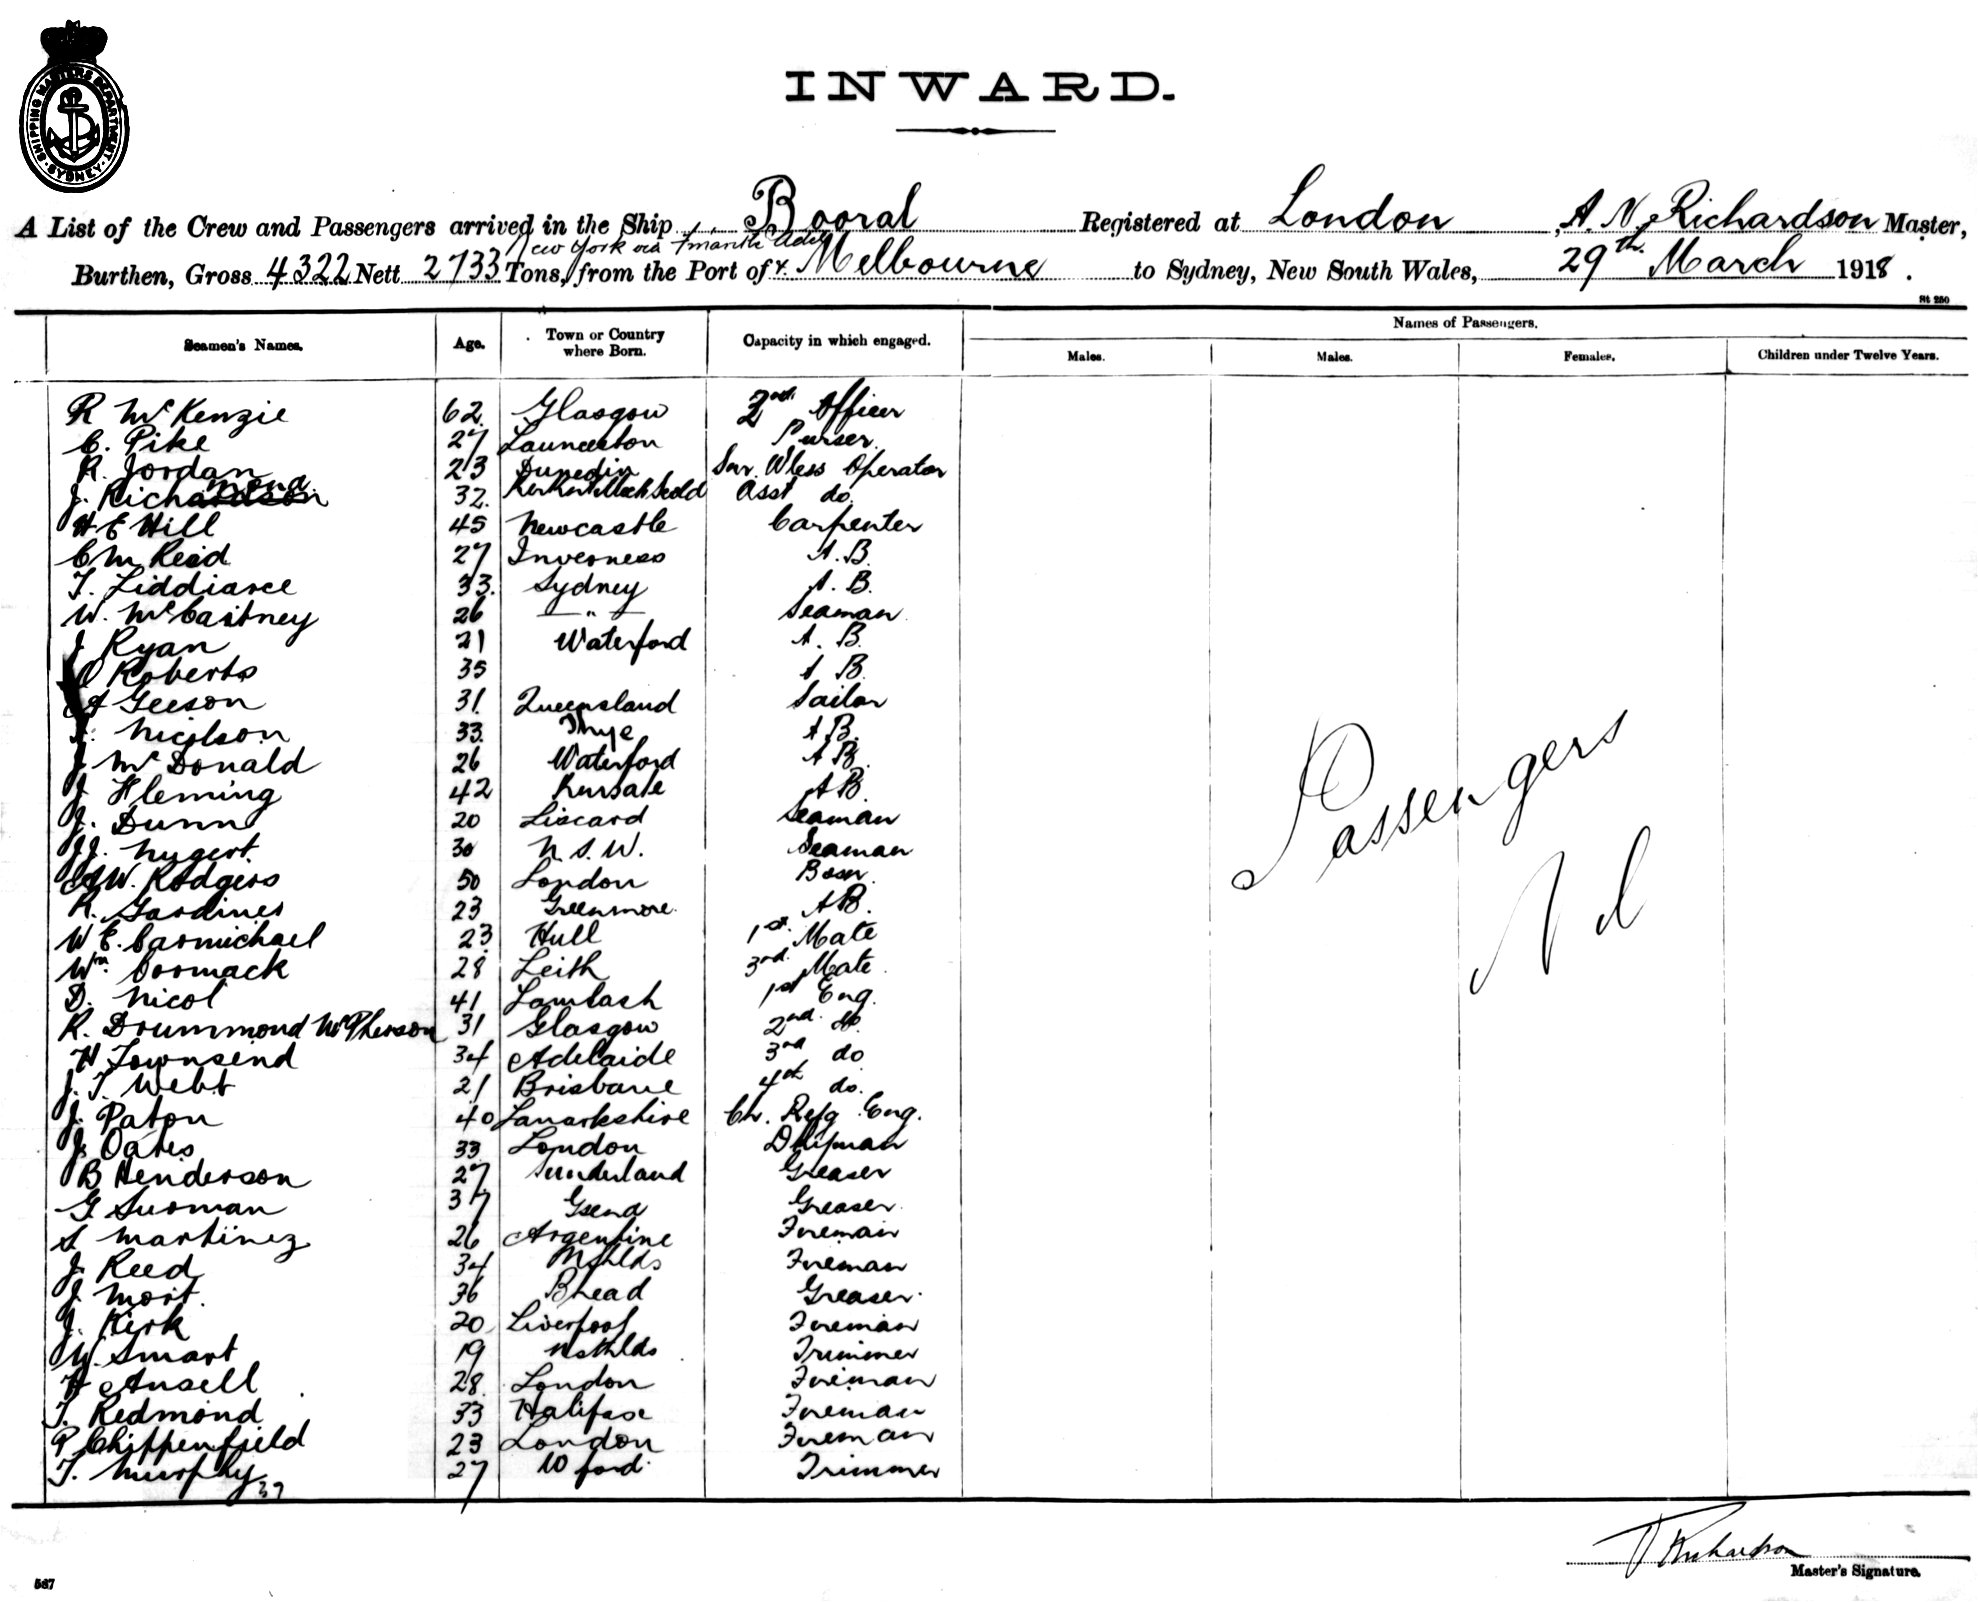 SHIPPING MASTERS DEPARTMENT
SYDNEY
INWARD.
A List of the Crew and Passengers arrived in the Ship Booral Registered at London, A. N. Richardson Master,
New York via
Burthen, Gross 4322 Nett 2733 Tons, from the Port of & Melbourne to Sydney, New South Wales, 29th March 1918.
St 250
Seamen's Names. Age. Town or Country where Born. Capacity in which engaged. Names of Passengers.
Males. Males. Females. Children under Twelve Years.
R McKenzie 62 Glasgow 2nd Officer
C. Pike 27 Launceston Purser
R. Jordan 23 Dunedin Snr. Wless Operator
J. Richardson mond 32. Asst do.
H E Hill 45 Newcastle Carpenter
C M Reid 27 Inverness A.B.
T. Liddiarce 33. Sydney A.B.
W. McCartney 26 — " — Seaman
J Ryan 21 Waterford A.B.
O Roberts 35 A B.
A Geeson 31. Queensland Sailor
Nicolson 33. A B.
J McDonald 26 Waterford A B.
J Fleming 42 Kinsale A B.
J. Dunn 20 Liscard Seaman
J.J. Nugent. 30 N.S.W. Seaman
A W. Rodgers 50 London Bosn.
R. Gardiner 23 Greenmore. A B.
W E. Carmichael 23 Hull 1st. Mate
Wm. Cormack 28 Leith 3rd. Mate
D. Nicol 41 Lamlash 1st Eng.
R. Drummond McPherson 31 Glasgow 2nd. do.
H Townsend 34 Adelaide 3rd do
J. T. Webb 21 Brisbane 4th do.
J. Paton 40 Lanarkshire Ch. Refg Eng.
J. Oates 33 London Dkyman
B Henderson 27 Sunderland Greaser
G Surman 37 Gsend Greaser
S Martinez 26 Argentine Fireman
J. Reed 34 Mthlds Fireman
J. Mort. 36 Bhead Greaser.
J. Kirk 20 Liverpool Fireman
W. Smart 19 Trimmer
H Ansell 28 London Fireman
T. Redmond 33 Halifax Fireman
P Chippenfield 23 London Fireman
T. Murphy 27 W ford. Trimmer
37
Passengers
Nil
Richardson
Master's Signature.
567